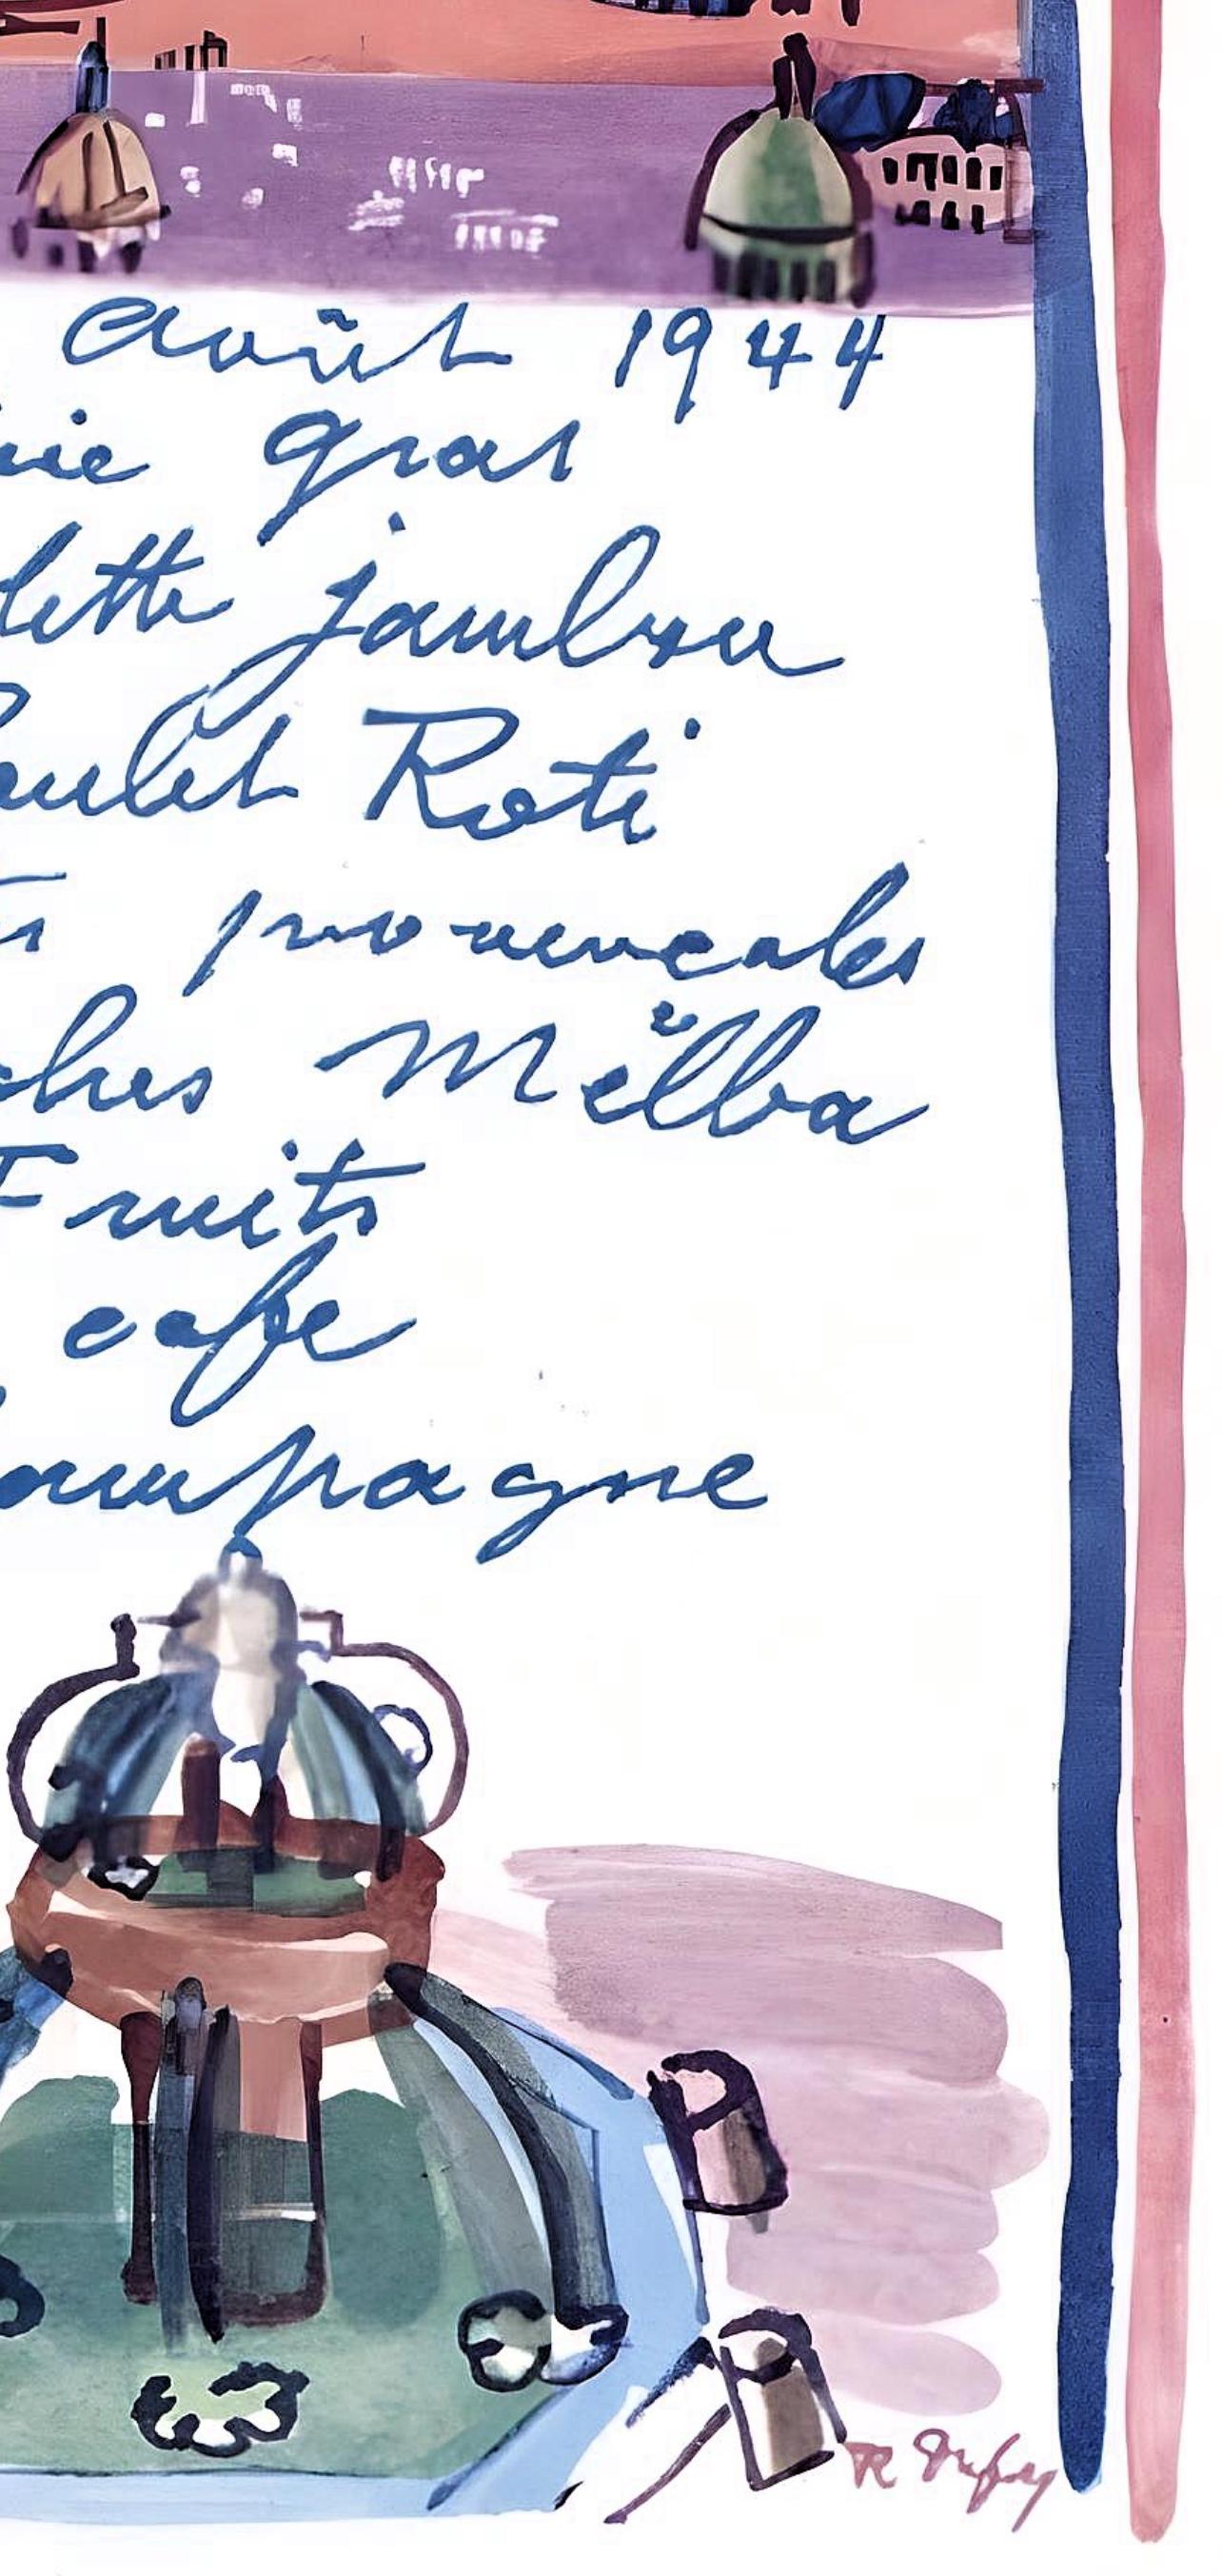 Août 1944
oie gras
lette jambon
oulet Roti
ts provencales
ches Melba
Fruits
cafe
hampagne
R Dufy